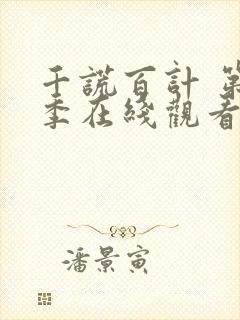 千謊百計 第
季在綫觀看
潘景寅